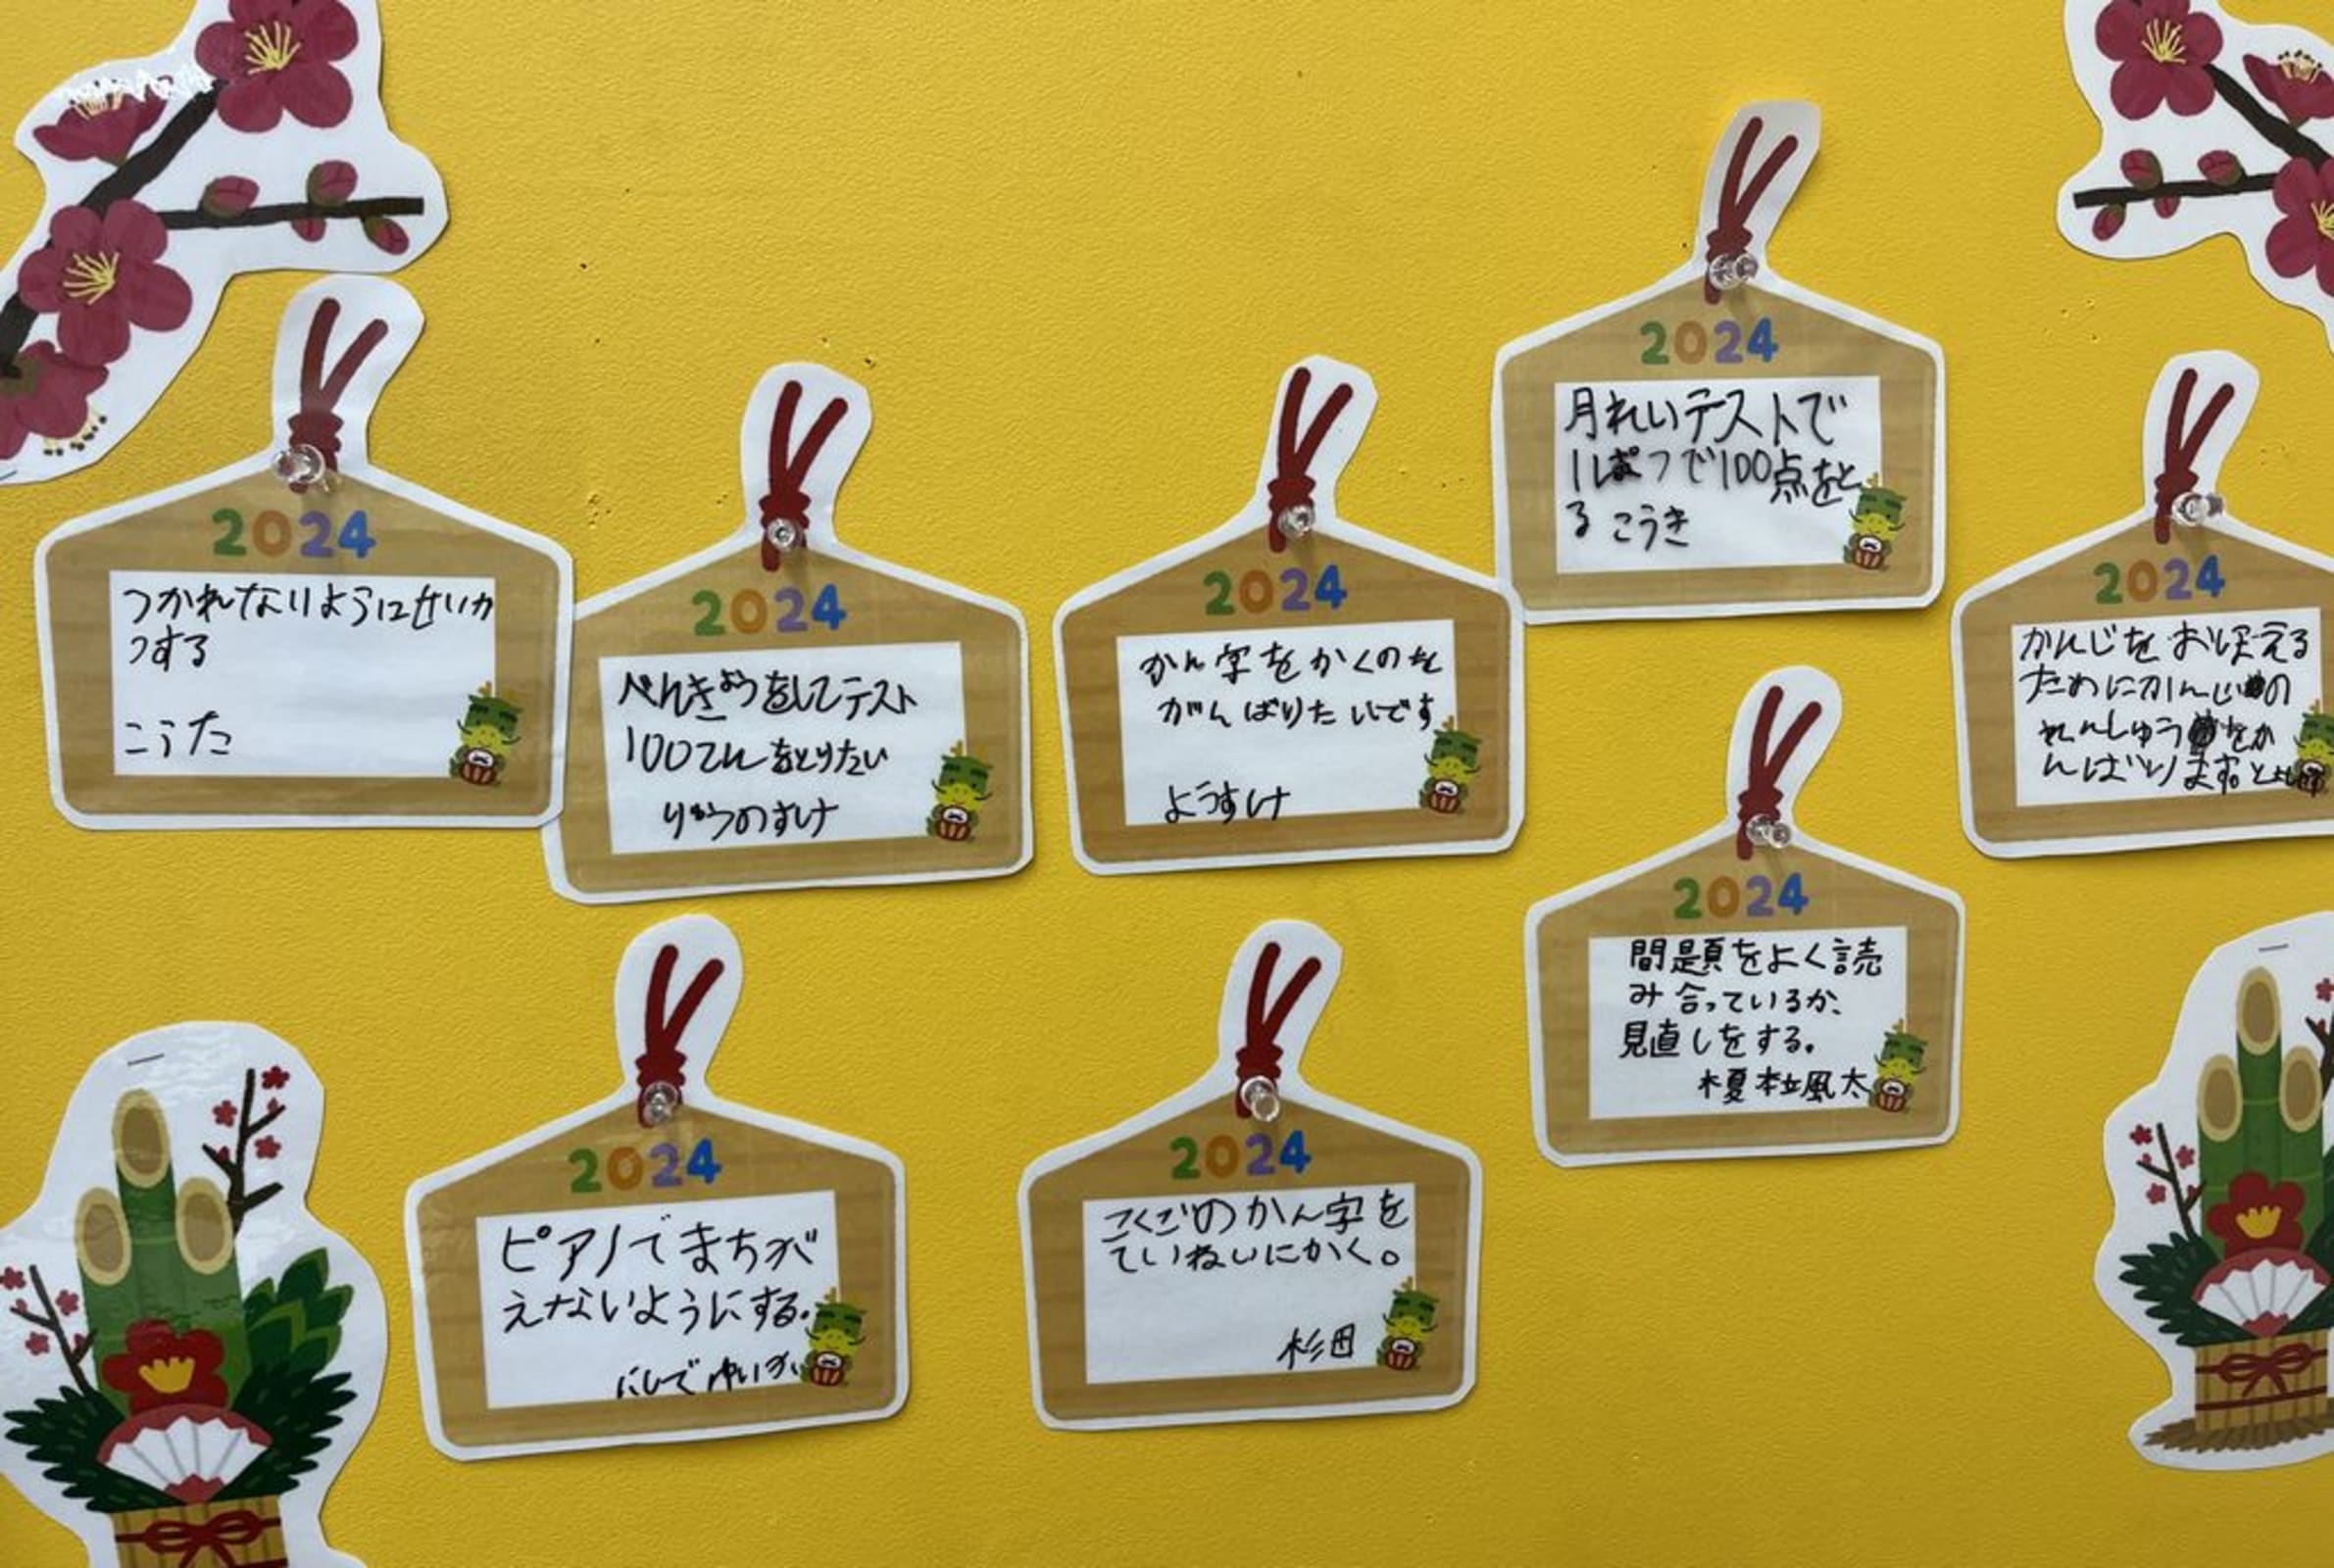 2024
つかれないようにせいか
つする
こうた
2024
べんきょうをしてテスト
100てんをとりたい
りゅうのすけ
2024
かん字をかくのを
がんばりたいです
ようすけ
2024
月れいテストで
1ぱつで100点をと
る こうき
2024
かんじをおぼえる
ためにかんじの
れんしゅうをが
んばります。
2024
問題をよく読
み合っているか、
見直しをする。
榎松風太
2024
ピアノでまちが
えないようにする。
にしで ゆいか
2024
こくごのかん字を
ていねいにかく。
杉田